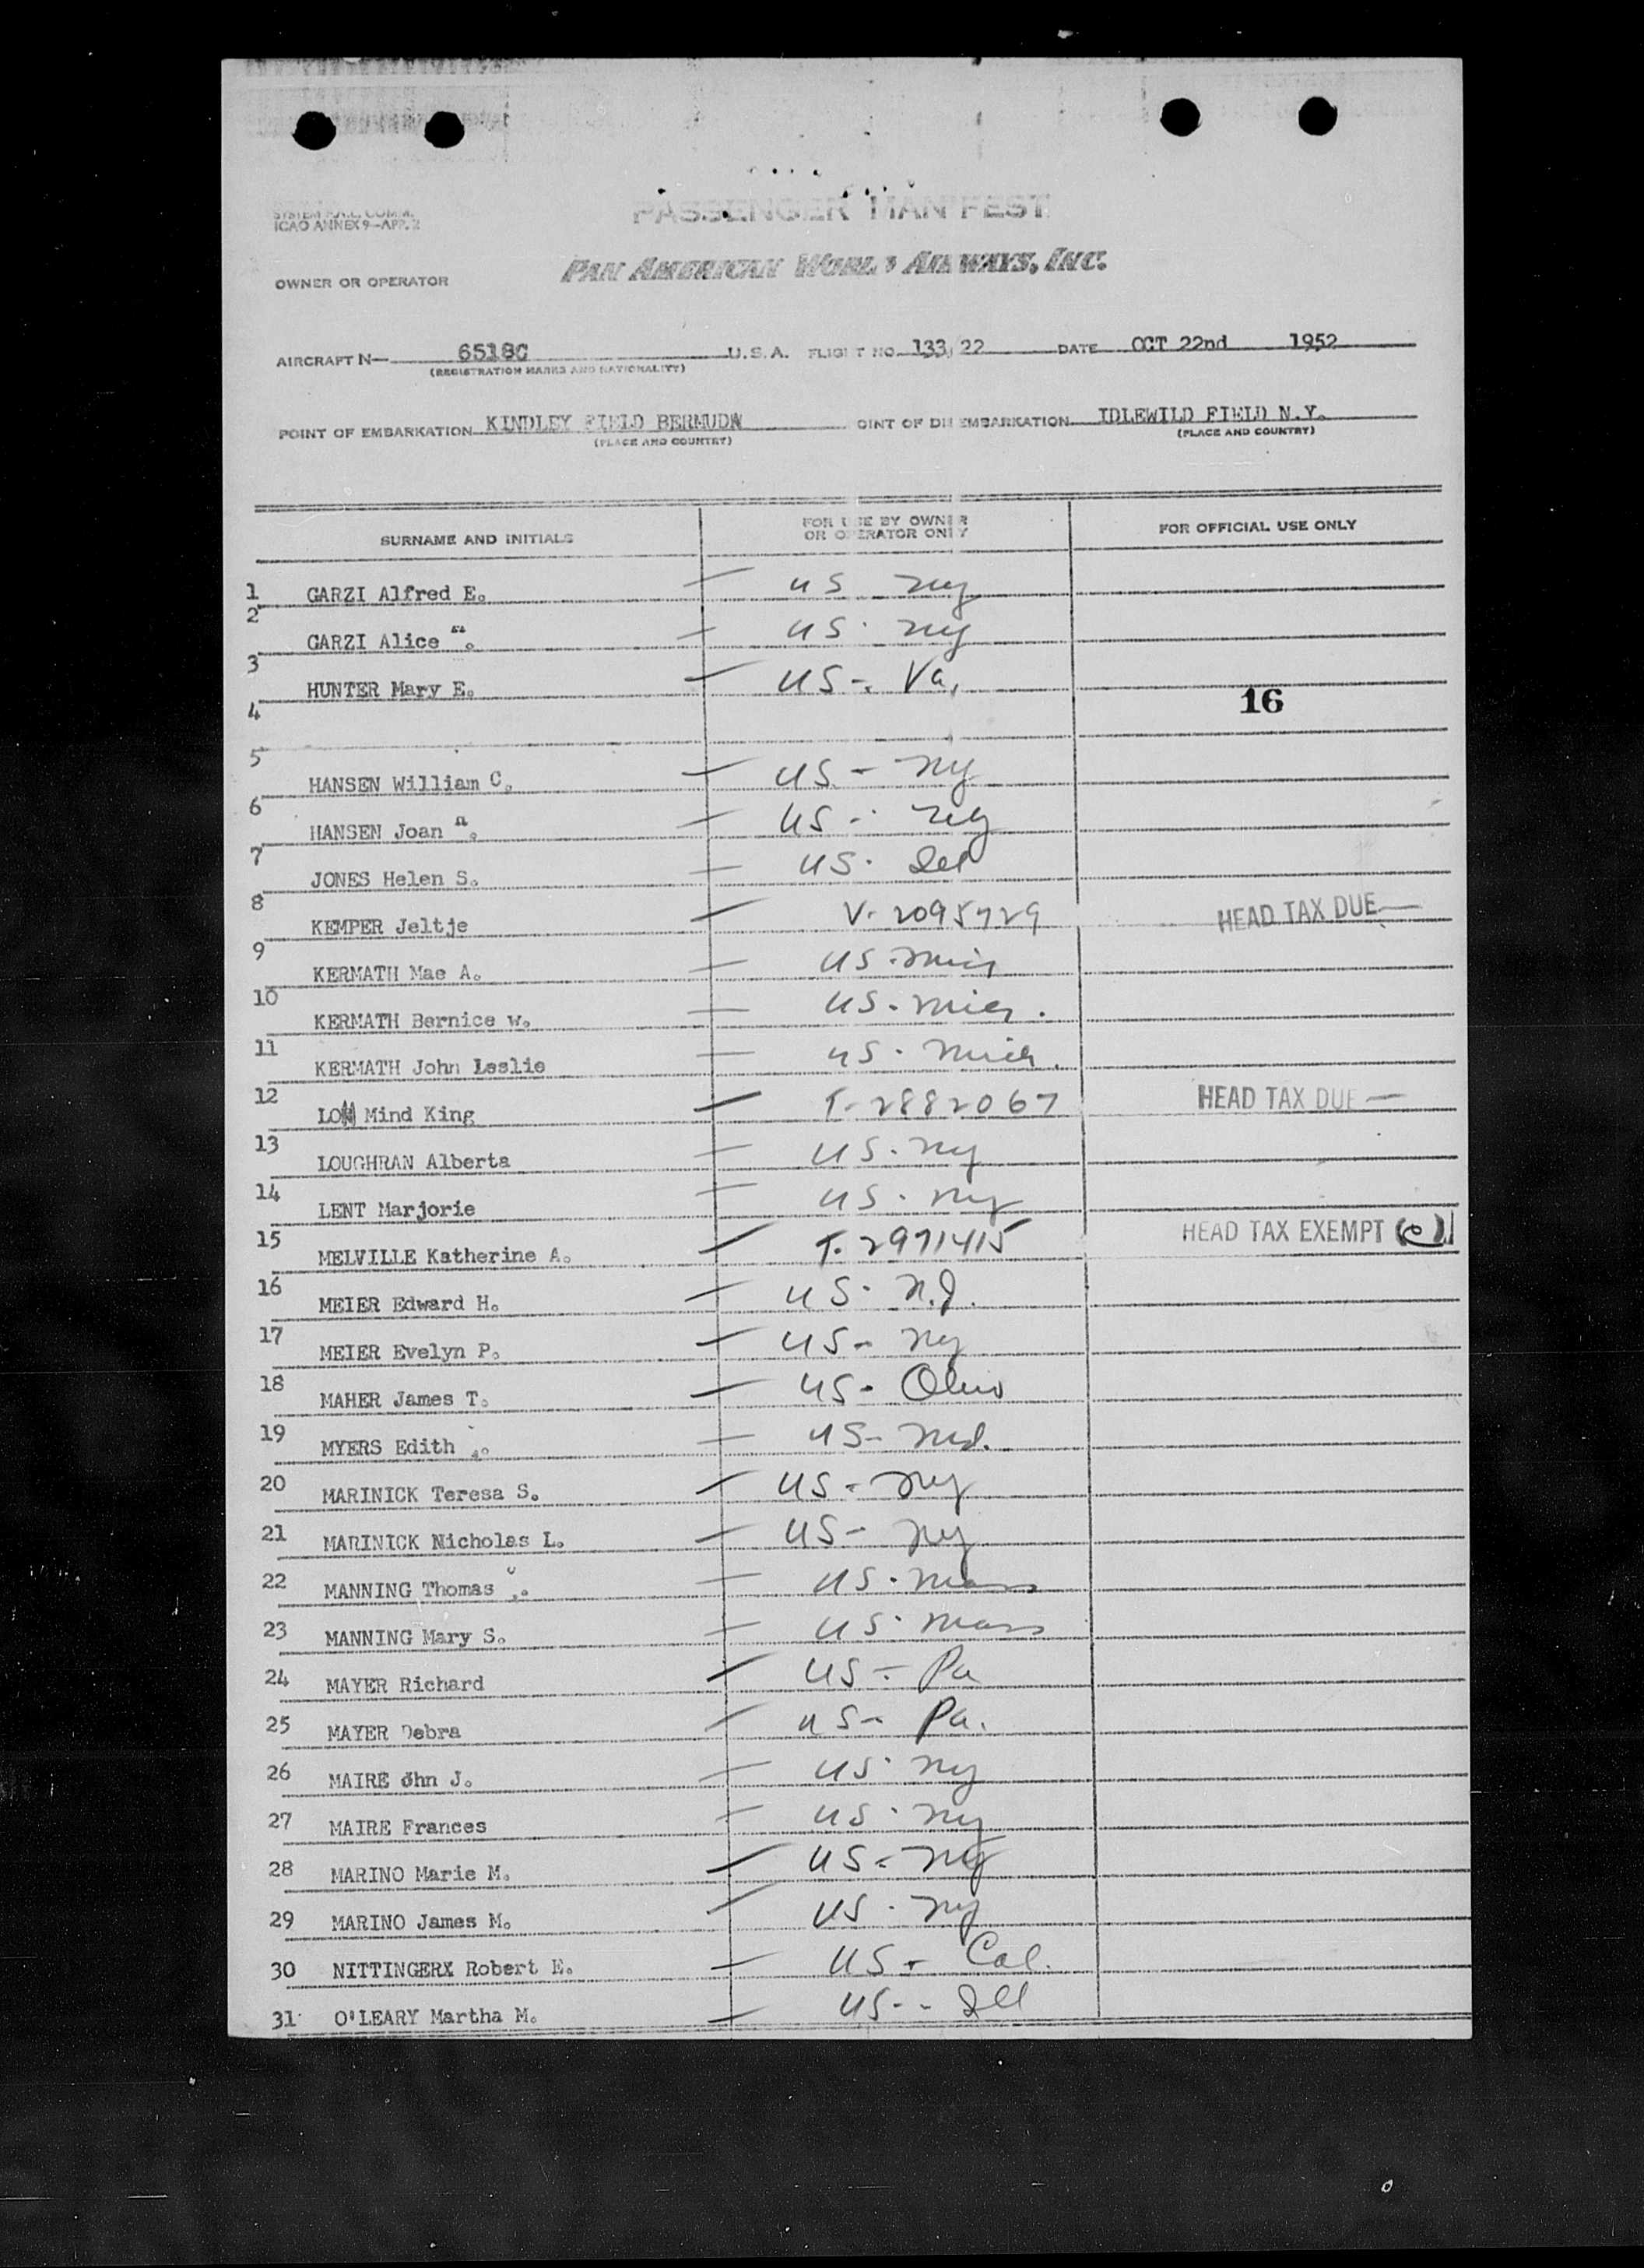 ICAO ANNEX 9—APP. 2
PASSENGER MANIFEST
PAN AMERICAN WORLD AIRWAYS, INC.
OWNER OR OPERATOR
AIRCRAFT N— 6518C U.S.A. FLIGHT NO. 133/22 DATE OCT 22nd 1952
(REGISTRATION MARKS AND NATIONALITY)
POINT OF EMBARKATION KINDLEY FIELD BERMUDW OINT OF DISEMBARKATION IDLEWILD FIELD N.Y.
(PLACE AND COUNTRY) (PLACE AND COUNTRY)
SURNAME AND INITIALS FOR USE BY OWNER OR OPERATOR ONLY FOR OFFICIAL USE ONLY
1 GARZI Alfred E. — US ny
2 GARZI Alice — US. ny
3 HUNTER Mary E. — US-. Va.
4 16
5 HANSEN William C. — US - ny
6 HANSEN Joan — US - ny
7 JONES Helen S. — US. Del
8 KEMPER Jeltje — V-2095729 HEAD TAX DUE—
9 KERMATH Mae A. — US. Mich
10 KERMATH Bernice W. — US. Mich.
11 KERMATH John Leslie — US. Mich.
12 Mind King — T-2882067 HEAD TAX DUE—
13 LOUGHRAN Alberta — US. ny
14 LENT Marjorie — US. ny
15 MELVILLE Katherine A. — T-2971415 HEAD TAX EXEMPT (c)
16 MEIER Edward H. — US- N.J.
17 MEIER Evelyn P. — US- ny
18 MAHER James T. — US- Ohio
19 MYERS Edith — US- Md.
20 MARINICK Teresa S. — US - ny
21 MARINICK Nicholas L. — US- ny
22 MANNING Thomas — US. Mass
23 MANNING Mary S. — US. Mass
24 MAYER Richard — US- Pa
25 MAYER Debra — US- Pa.
26 MAIRE Ohn J. — US. ny
27 MAIRE Frances — US. ny
28 MARINO Marie M. — US- ny
29 MARINO James M. — US. ny
30 NITTINGERX Robert E. — US- Cal.
31 O'LEARY Martha M. — US-- Ill